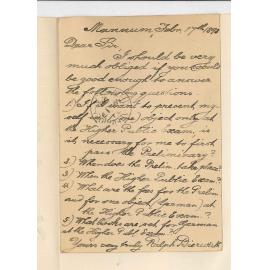 Mannum, Febr. 17th 1892
Dear Sir,
I should be very
much obliged if you would
be good enough to answer
the following questions:
1.) If I want to present my
self in one object only at
the Higher Public Exam, is
it necessary for me to first
pass the Preliminary?
2.) When does the Prelim. take place?
3.) When the Higher Public Exam?
4.) What are the fees for the Prelim
and for one object (German) at
the Higher Public Exam?
5.) What books are set for German
at the Higher Pbl. Exam?
Yours very truly Ralph